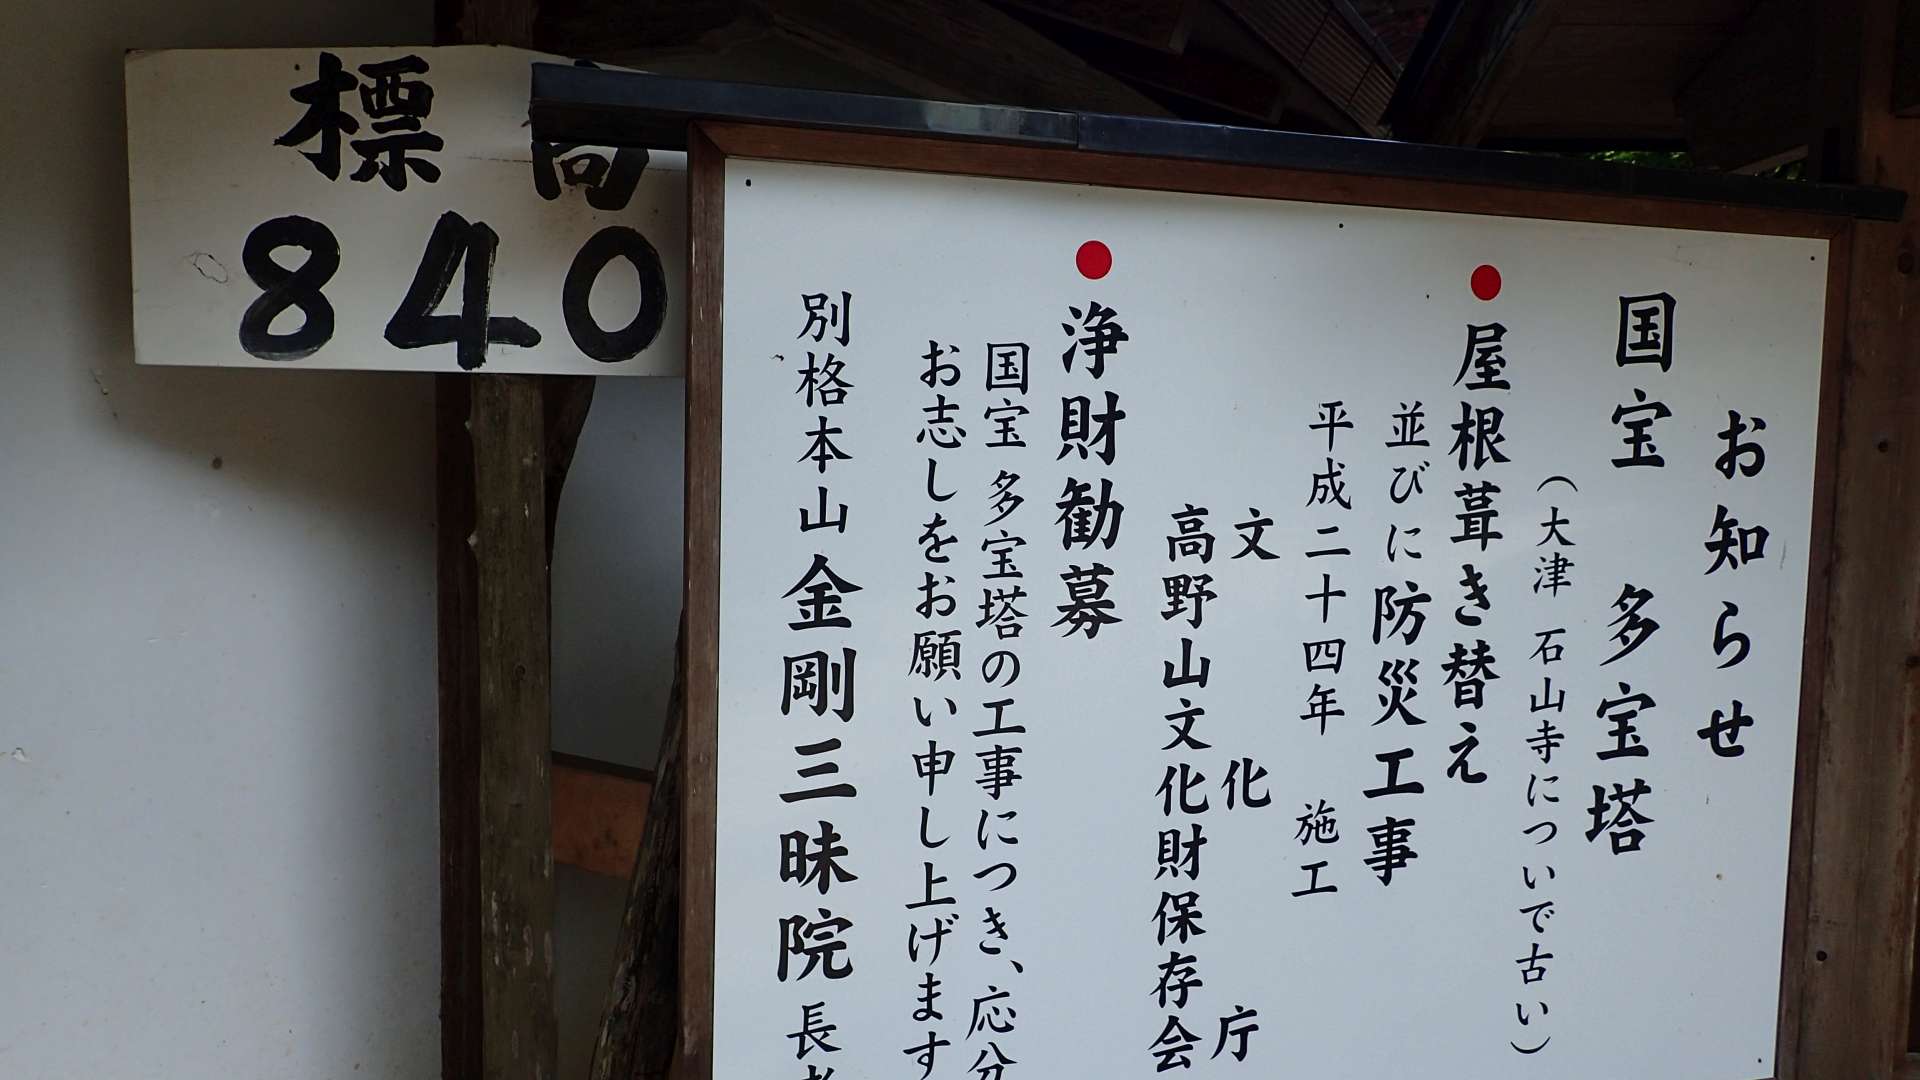 標高
840
お知らせ
国宝 多宝塔
（大津 石山寺についで古い）
屋根葺き替え
並びに防災工事
平成二十四年 施工
文化庁
高野山文化財保存会
浄財勧募
国宝 多宝塔の工事につき、応分
お志しをお願い申し上げます
別格本山 金剛三昧院 長